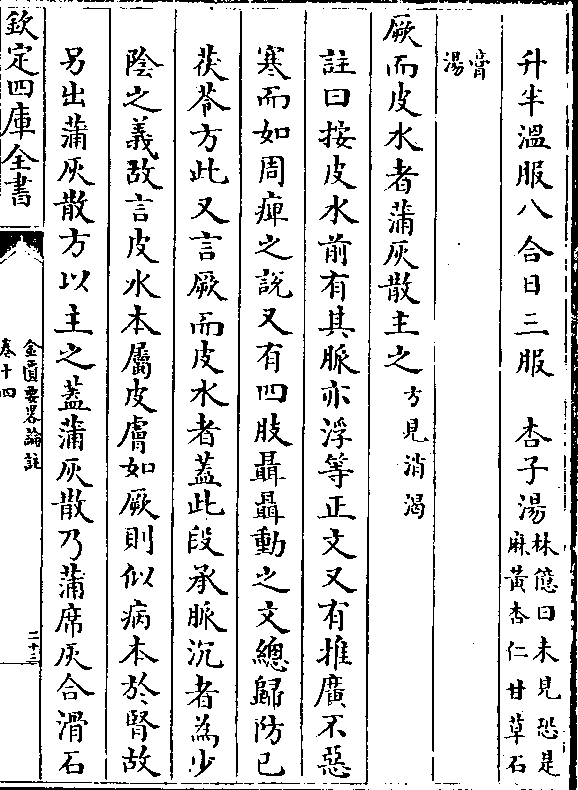 升半溫服八合日三服　杏子湯林億曰未見恐是麻黃杏仁甘草石
膏湯
厥而皮水者蒲灰散主之方見消渴
註曰按皮水前有其脈亦浮等正文又有推廣不惡
寒而如周痺之說又有四肢聶聶動之文總歸防已
茯苓方此又言厥而皮水者蓋此段承脈沉者為少
陰之義故言皮水本屬皮膚如厥則似病本於腎故
另出蒲灰散方以主之蓋蒲灰散乃蒲席灰合滑石
欽定四庫全書
金匱要畧論註
卷十四
二十三